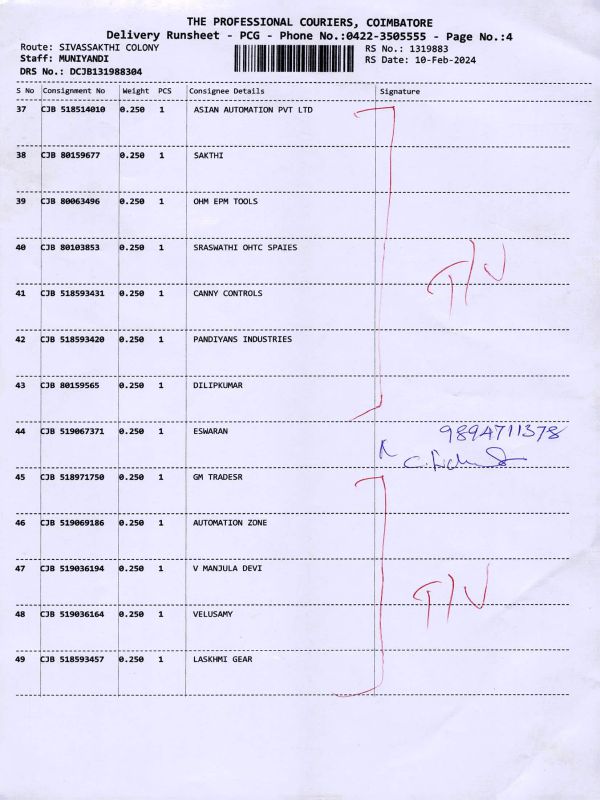 THE PROFESSIONAL COURIERS, COIMBATORE
Delivery Runsheet - PCG - Phone No.:0422-3505555 - Page No.:4
Route: SIVASSAKTHI COLONY RS No.: 1319883
Staff: MUNIYANDI RS Date: 10-Feb-2024
DRS No.: DCJB131988304
S No Consignment No Weight PCS Consignee Details Signature
37 CJB 518514010 0.250 1 ASIAN AUTOMATION PVT LTD
38 CJB 80159677 0.250 1 SAKTHI
39 CJB 80063496 0.250 1 OHM EPM TOOLS
40 CJB 80103853 0.250 1 SRASWATHI OHTC SPAIES
T/N
41 CJB 518593431 0.250 1 CANNY CONTROLS
42 CJB 518593420 0.250 1 PANDIYANS INDUSTRIES
43 CJB 80159565 0.250 1 DILIPKUMAR
44 CJB 519067371 0.250 1 ESWARAN 9894711378
45 CJB 518971750 0.250 1 GM TRADESR
46 CJB 519069186 0.250 1 AUTOMATION ZONE
47 CJB 519036194 0.250 1 V MANJULA DEVI
T/N
48 CJB 519036164 0.250 1 VELUSAMY
49 CJB 518593457 0.250 1 LASKHMI GEAR